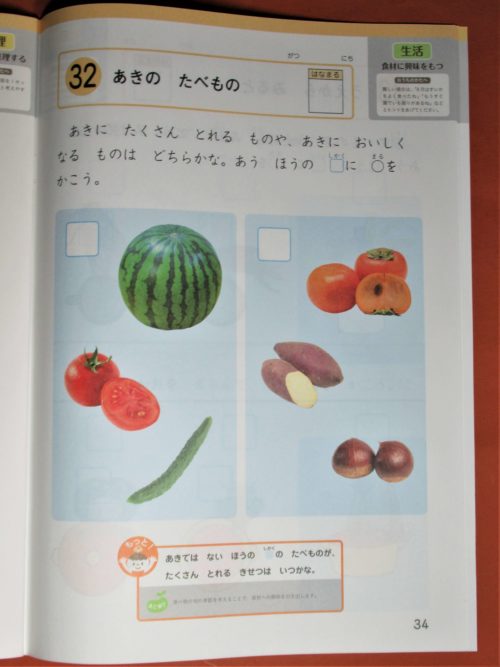 がつ　にち
生活
食材に興味をもつ
32 あきの たべもの
はなまる
あきに たくさん とれる ものや、あきに おいしく
なる ものは どちらかな。あう ほうの □に ○を
かこう。
もっと!
あきでは ない ほうの □の たべものが、
たくさん とれる きせつは いつかな。
34